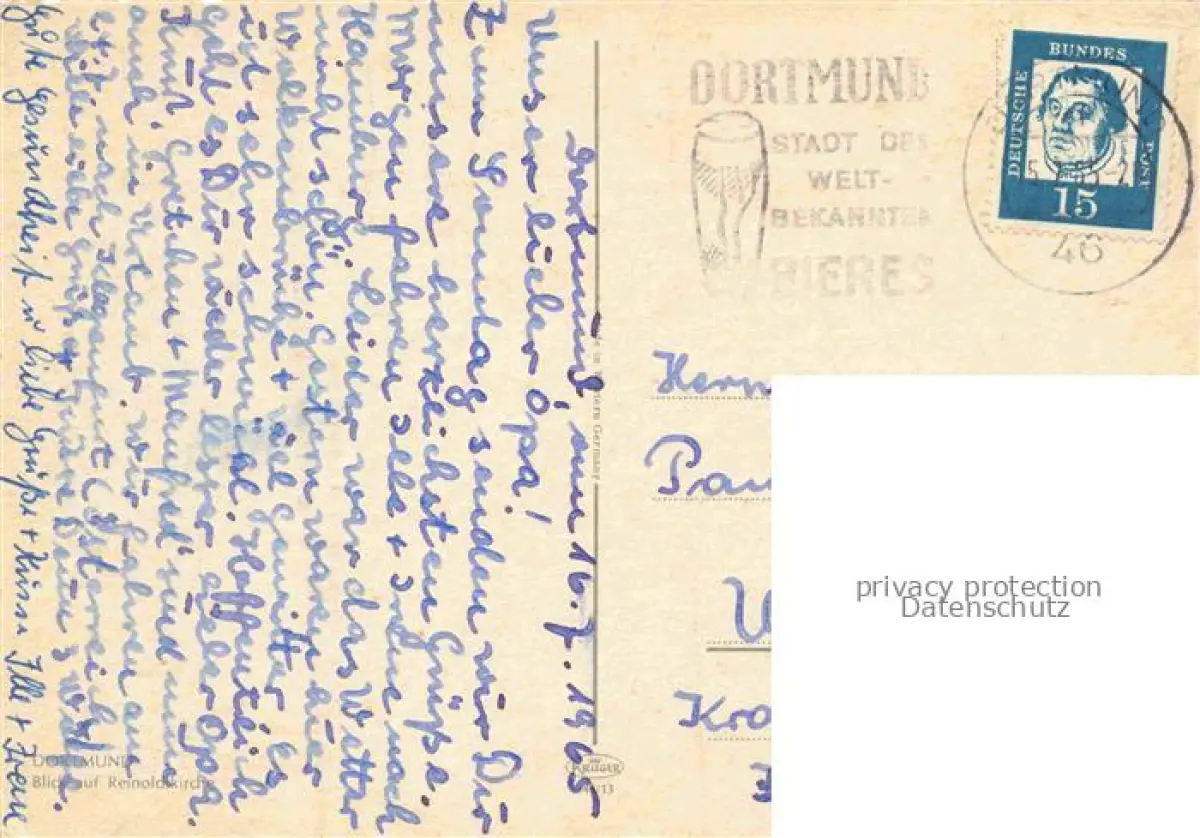 Dortmund, am 16.7.1965
Unser lieber Opa!
Zum Sonntag senden wir Dir
unsere herzlichsten Grüße.
Morgen fahren Ilse + Irene nach
Hamburg. Leider war das Wetter
nicht schön. Gestern waren hier
Wolkenbrüche + viel Gewitter. Es
ist sehr schwül. Hoffentlich
geht es Dir wieder besser lieber Opa.
Gretchen + Manfred sind nun
auch in Urlaub, wir fahren am
nach Klagenfurt (Österreich)
Viele liebe Grüße
Gute Gesundheit u liebe Grüße + Küsse Ille + Irene
DORTMUND
Blick auf Reinoldikirche
Germany
KRÜGER
DORTMUND
STADT DES
WELT-
BEKANNTEN
BIERES
DEUTSCHE BUNDES POST
15
46
Herrn
Pau
Kra
privacy protection
Datenschutz